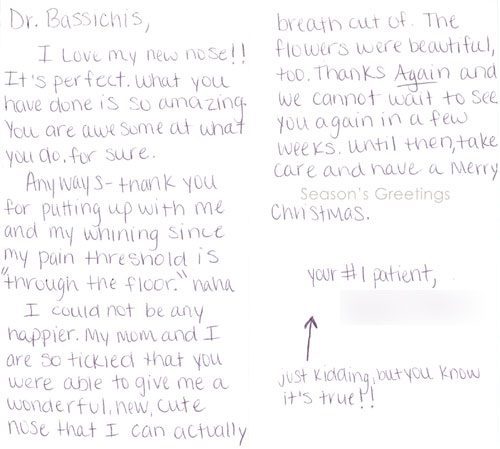 Dr. Bassichis,
I Love my new nose!!
It's perfect. What you
have done is so amazing
You are awesome at what
you do, for sure.
Anyways - thank you
for putting up with me
and my whining since
my pain threshold is
"through the floor." haha
I could not be any
happier. My mom and I
are so tickled that you
were able to give me a
wonderful, new, cute
nose that I can actually
breath out of. The
flowers were beautiful,
too. Thanks Again and
we cannot wait to see
you again in a few
weeks. Until then, take
care and have a Merry
Season's Greetings
Christmas.
your #1 patient,
just kidding, but you know
it's true!!